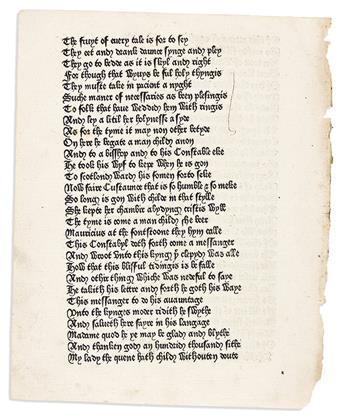 The fruyt of euery tale is for to sey
They eet and drank daunce synge and pley
They go to bedde as it is skyl and right
For though that wyuys be ful holy thyngis
They muste take in pacient a nyght
Suche maner of necessaries as been plesingis
To folk that haue wedded hem with ringis
And ley a litil her holynesse a syde
As for the tyme it may non other betyde
On here he begate a man childy anon
And to a bisshop and to his Constable eke
He took his wyf to kepe when he is gon
To scotlond ward his fomen forto seke
Now faire Custaunce that is so humble & so meke
So long is gon with childe in that stylle
She kepte her chambir abydyng cristis wyll
The tyme is come a man child she beer
Mauricius at the fontstoone they hym calle
This Constabyl doth forth come a messanger
And wroot vnto this kyng þ clepyd was alle
How that this blisful tidingis is be falle
And other thing whiche was nedeful to saye
He takith his lettre and forth he goth his waye
This messanger to do his auauntage
Vnto the kyngis moder ridith he swythe
And salueth here fayre in his langage
Madame quod he ye may be glady and blythe
And thanken gody an hundridy thousandy sithe
My lady the quene hath childy withouten doute